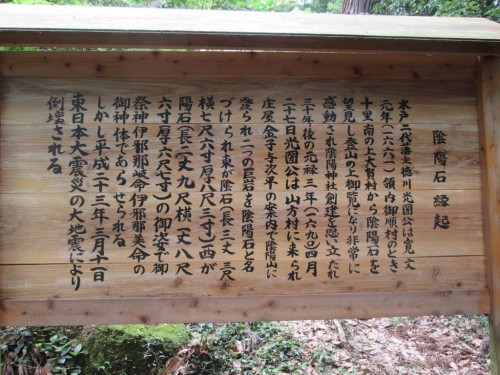 陰陽石縁起
水戸二代藩主徳川光圀公は寛文
元年(一六六一)領内御順村のとき
十里南の上大賀村から陰陽石を
望見し登山の上御覧になり非常に
感動され陰陽神社創建を思い立たれ
三十年後の元禄三年(一六九〇)四月
二十七日光圀公は山方村に来られ
庄屋金子与次平の案内で陰陽山に
登られ二つの巨石を陰陽石と名
づけられ東が陰石(長三丈三尺
横七尺六寸厚八尺三寸)西が
陽石(長二丈九尺横一丈八尺
六寸厚一丈六尺七寸)の御姿で御
祭神伊邪那岐命伊邪那美命の
御神体であらせられる
しかし平成二十三年三月十一日
東日本大震災の大地震により
倒壊される